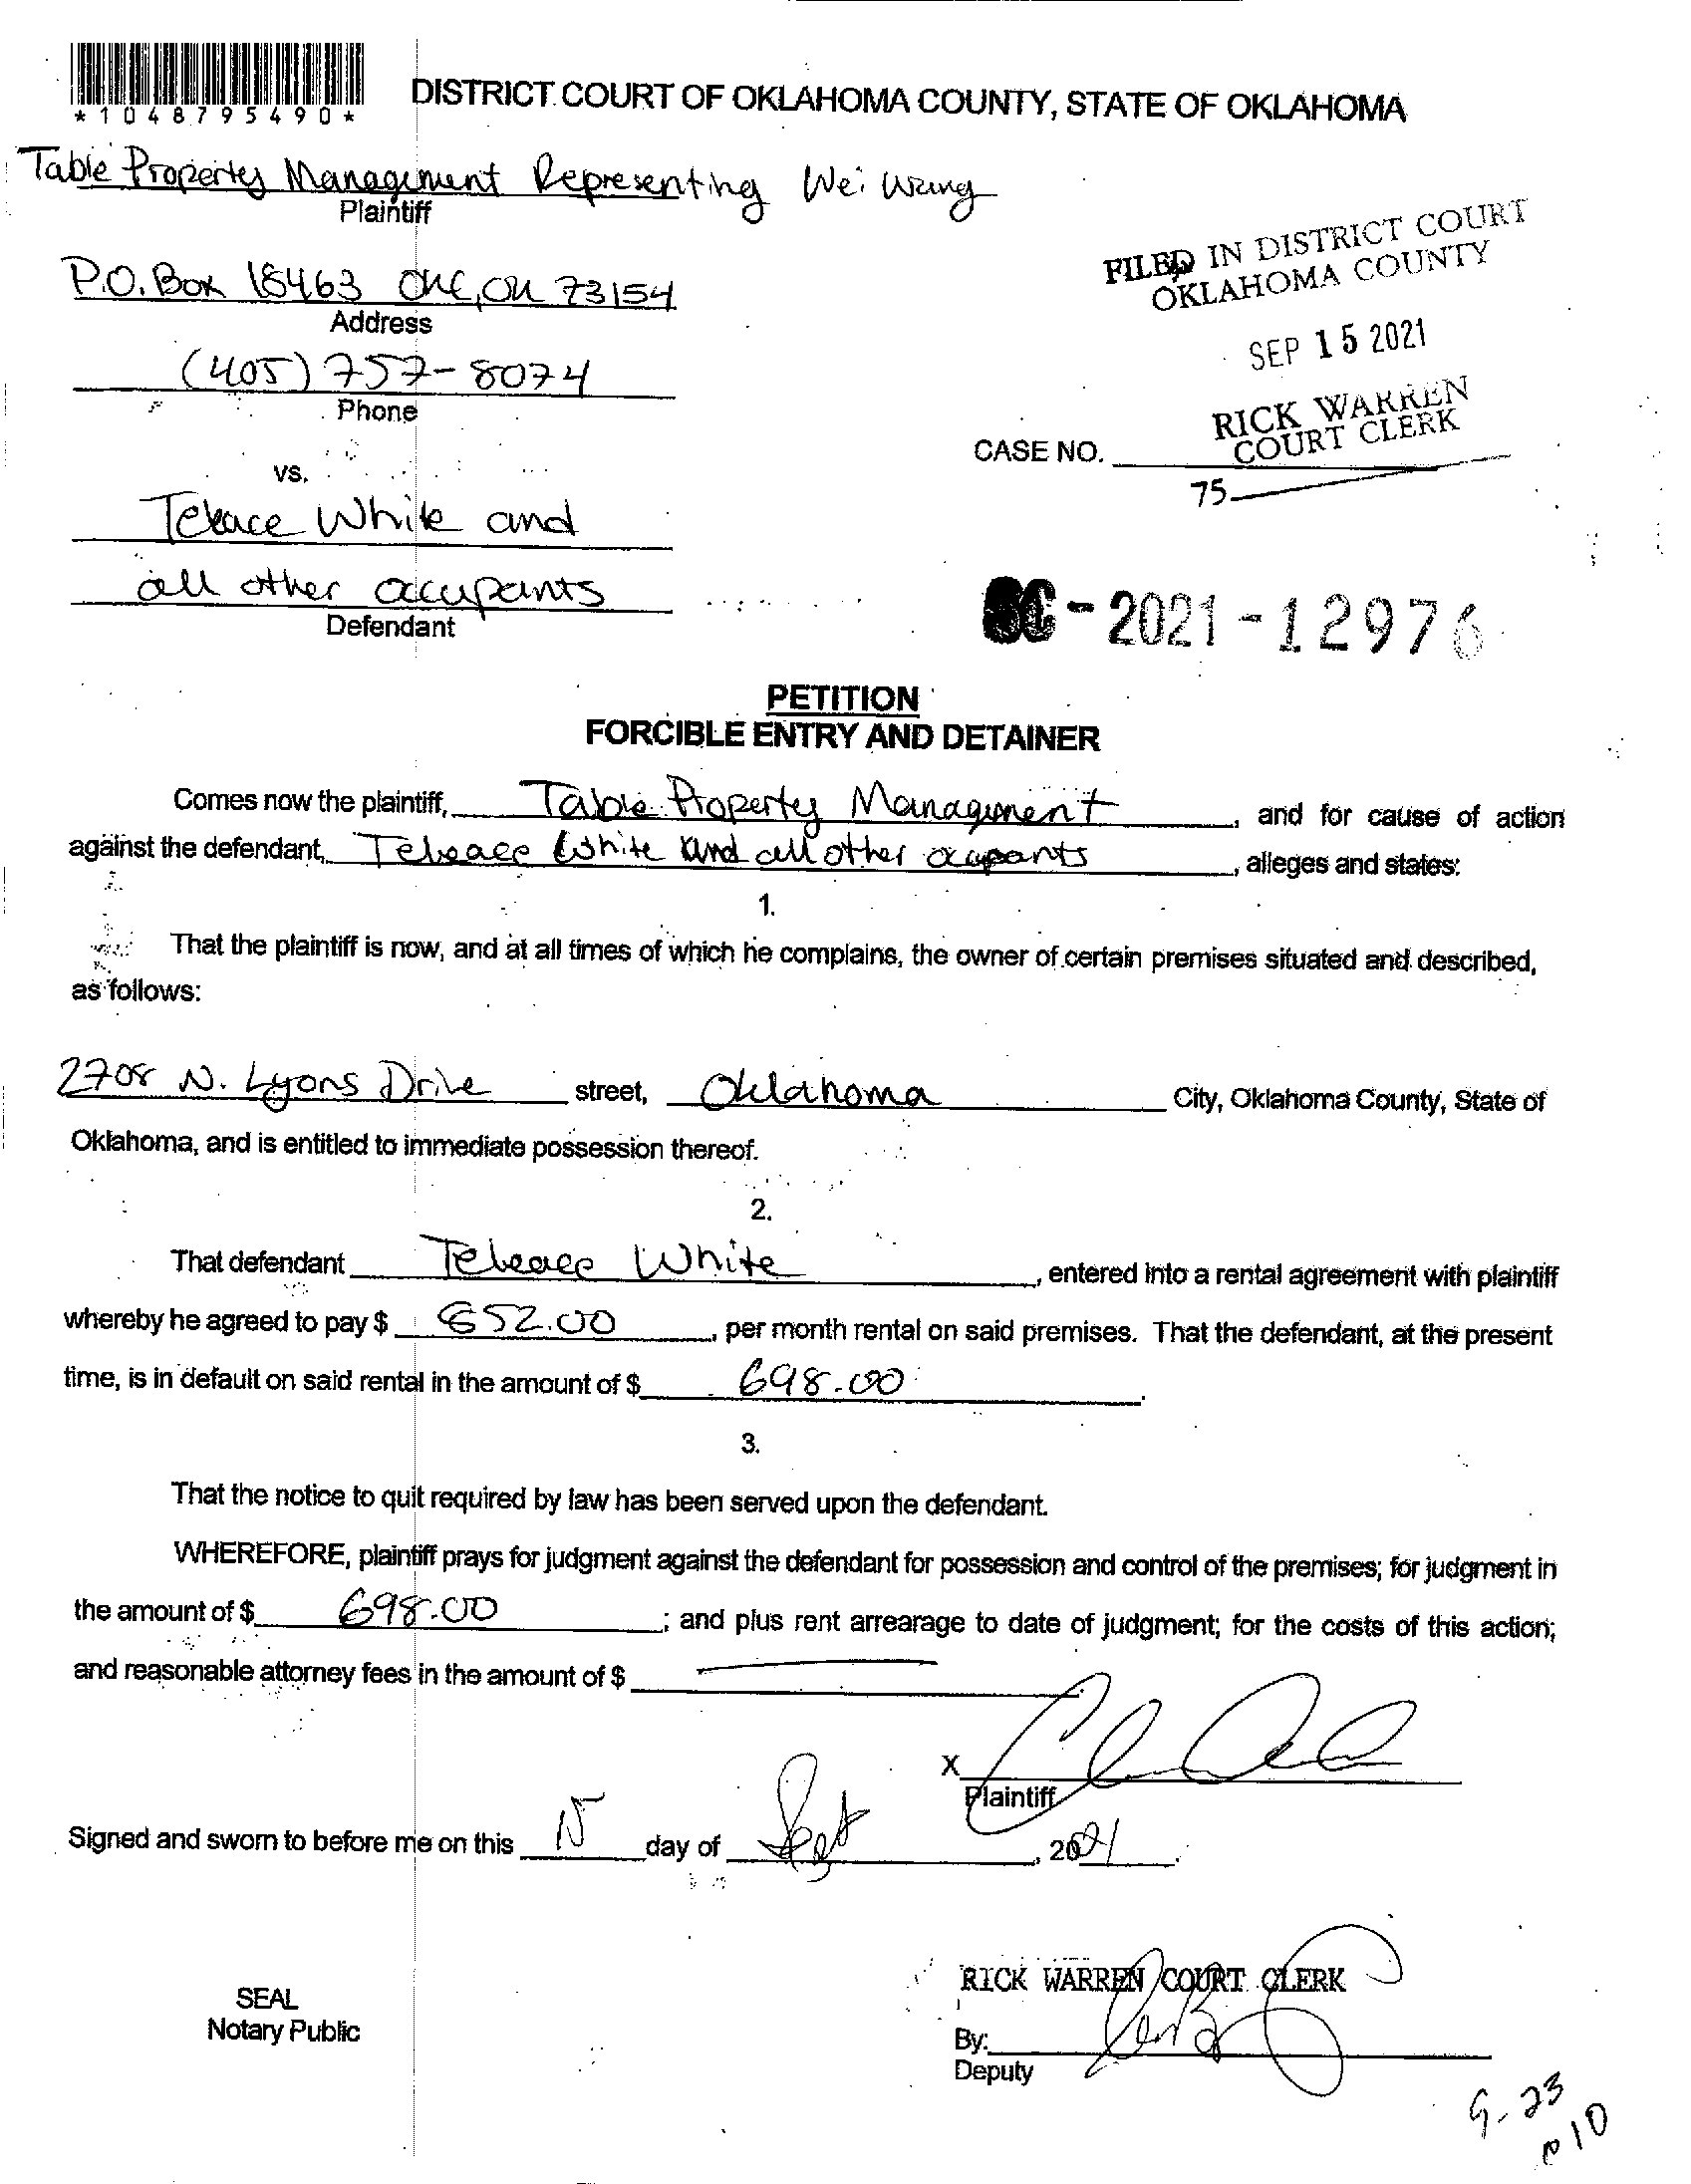 *1048795490*
DISTRICT COURT OF OKLAHOMA COUNTY, STATE OF OKLAHOMA
Table Property Management Representing Wei Wang
Plaintiff
P.O. Box 18463 OKC, OK 73154
Address
(405) 757-8074
Phone
FILED IN DISTRICT COURT
OKLAHOMA COUNTY
SEP 15 2021
RICK WARREN
COURT CLERK
CASE NO.
75
vs.
White and
all other occupants
Defendant
SC-2021-12976
PETITION
FORCIBLE ENTRY AND DETAINER
Comes now the plaintiff, Table Property Management, and for cause of action
against the defendant, White and all other occupants, alleges and states:
1.
That the plaintiff is now, and at all times of which he complains, the owner of certain premises situated and described,
as follows:
2708 N. Lyons Drive street, Oklahoma City, Oklahoma County, State of
Oklahoma, and is entitled to immediate possession thereof.
2.
That defendant White, entered into a rental agreement with plaintiff
whereby he agreed to pay $ 652.00, per month rental on said premises. That the defendant, at the present
time, is in default on said rental in the amount of $ 698.00.
3.
That the notice to quit required by law has been served upon the defendant.
WHEREFORE, plaintiff prays for judgment against the defendant for possession and control of the premises; for judgment in
the amount of $ 698.00; and plus rent arrearage to date of judgment; for the costs of this action;
and reasonable attorney fees in the amount of $
X
Plaintiff
Signed and sworn to before me on this 15 day of Sept, 2021.
SEAL
Notary Public
RICK WARREN COURT CLERK
By:
Deputy
9-23
10